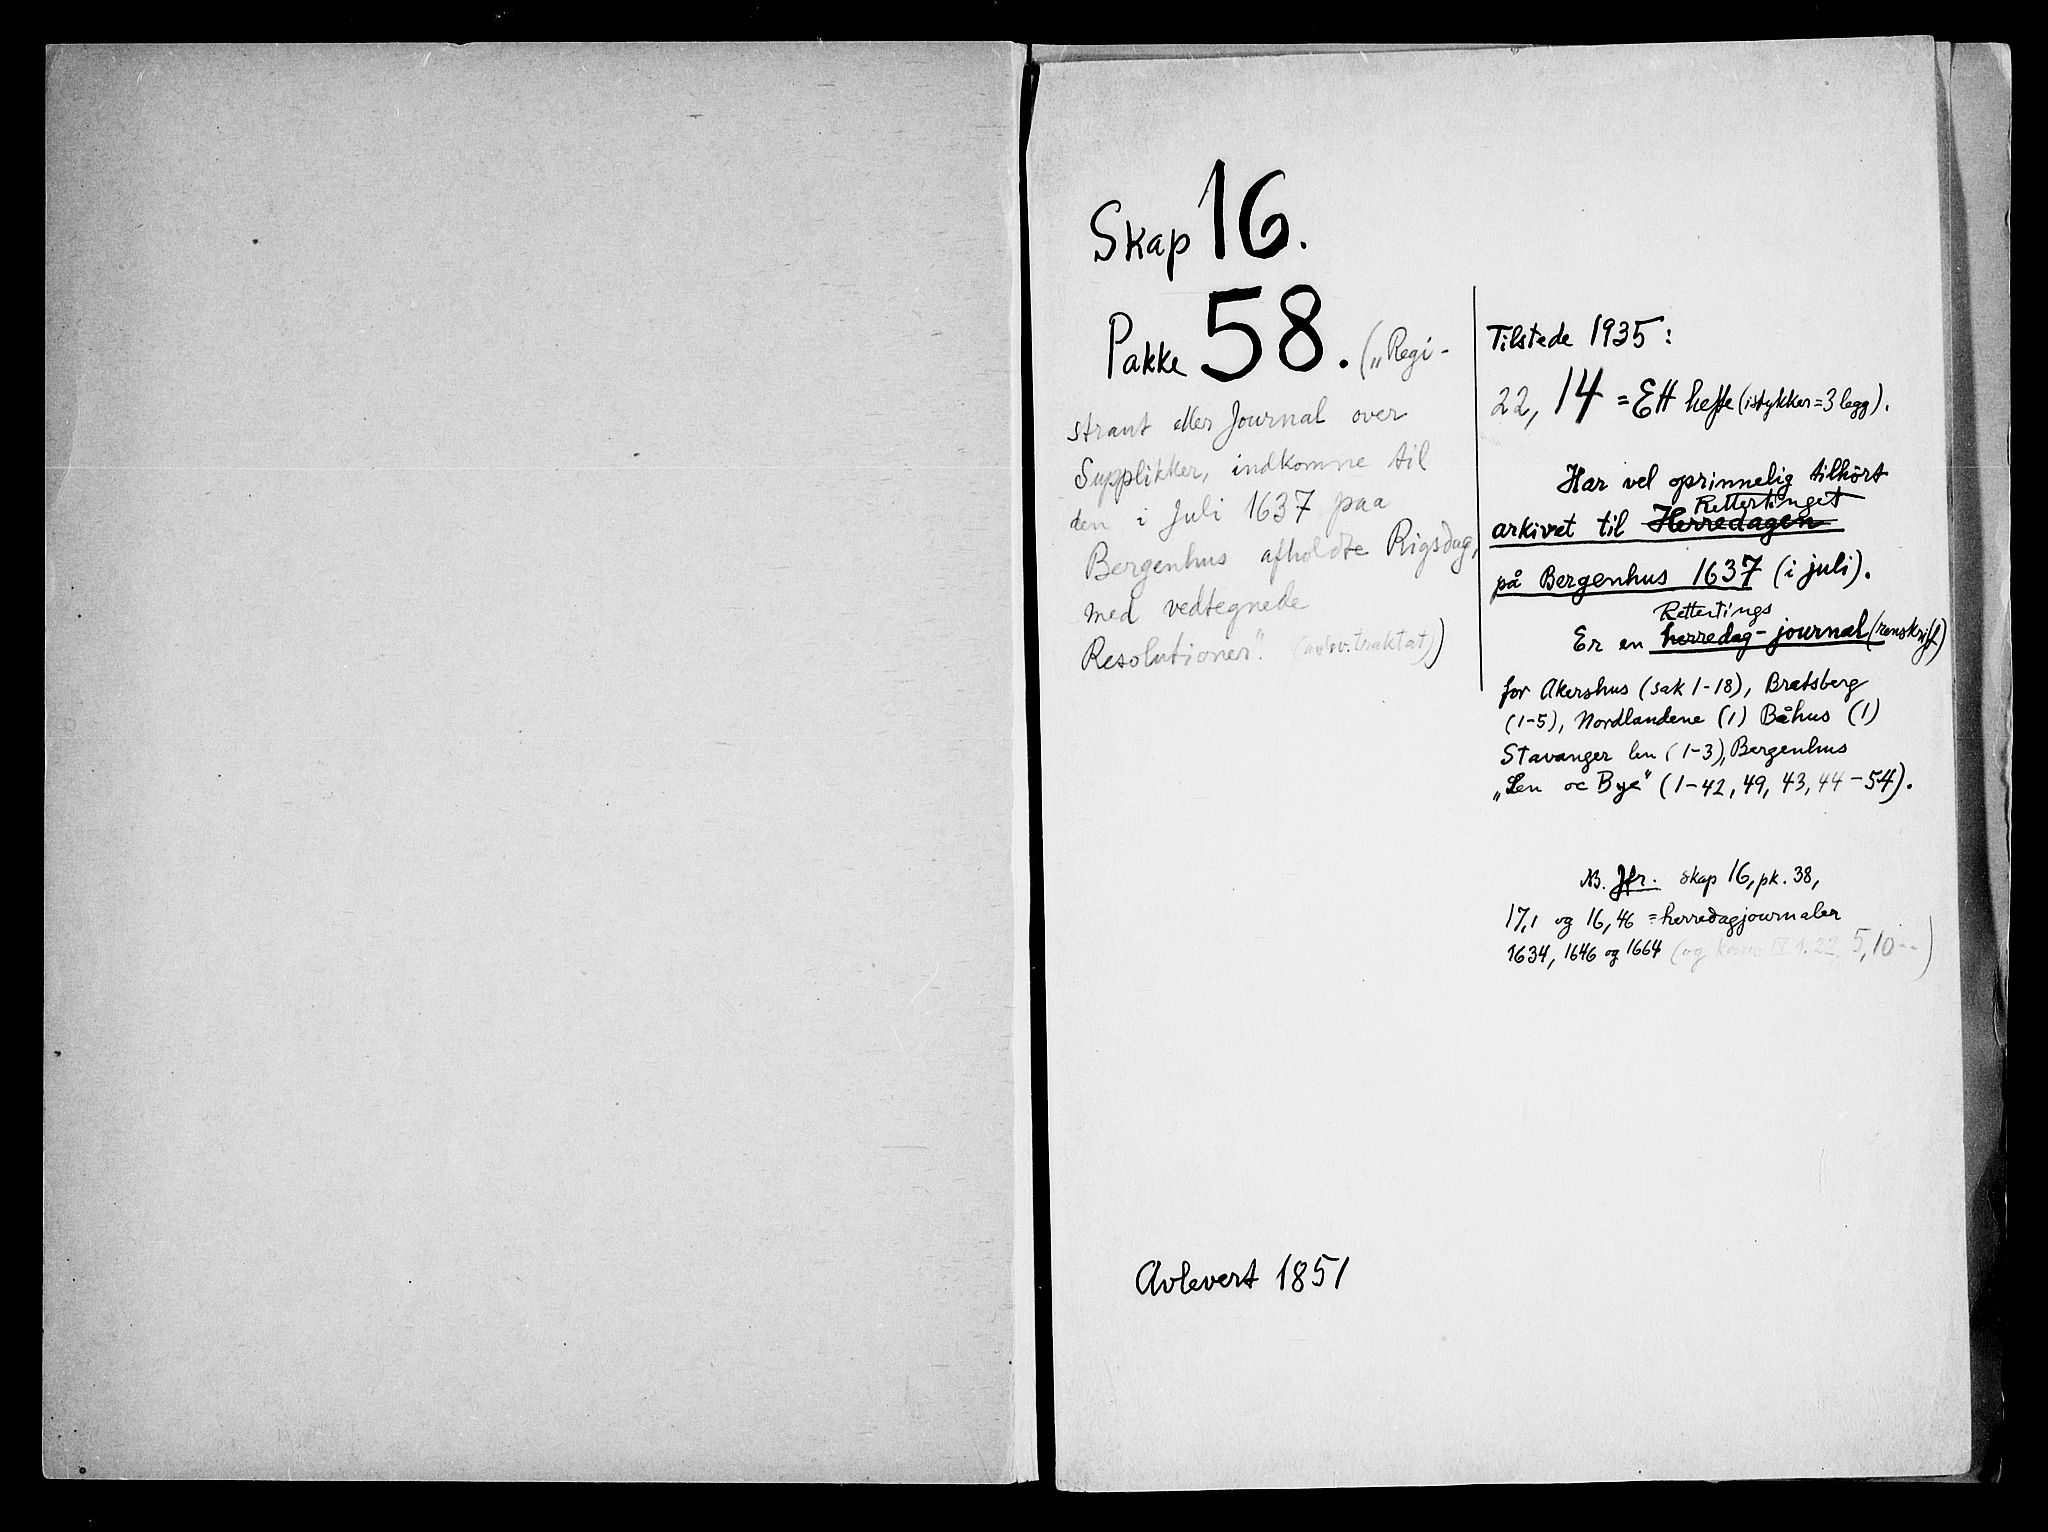 Skap 16.
Pakke 58. („Regi-
strant eller Journal over
Supplikker, indkomne til
den i Juli 1637 paa
Bergenhus afholdte Rigsdag,
med vedtegnede
Resolutioner.")
Tilstede 1935:
22, 14 = Ett hefte (istykker = 3 legg).
Har vel oprinnelig tilhørt
Rettertinget
arkivet til Herredagen
på Bergenhus 1637 (i juli).
Rettertings
Er en herredag-journal (renskrift)
for Akershus (sak 1-18), Bratsberg
(1-5), Nordlandene (1) Båhus (1)
Stavanger len (1-3), Bergenhus
„Len oc Bye" (1-42, 49, 43, 44-54).
NB. Jfr. skap 16, pk. 38,
17,1 og 16, 46 = herredagjournaler
1634, 1646 og 1664 (og 22, 5, 10)
Avlevert 1851